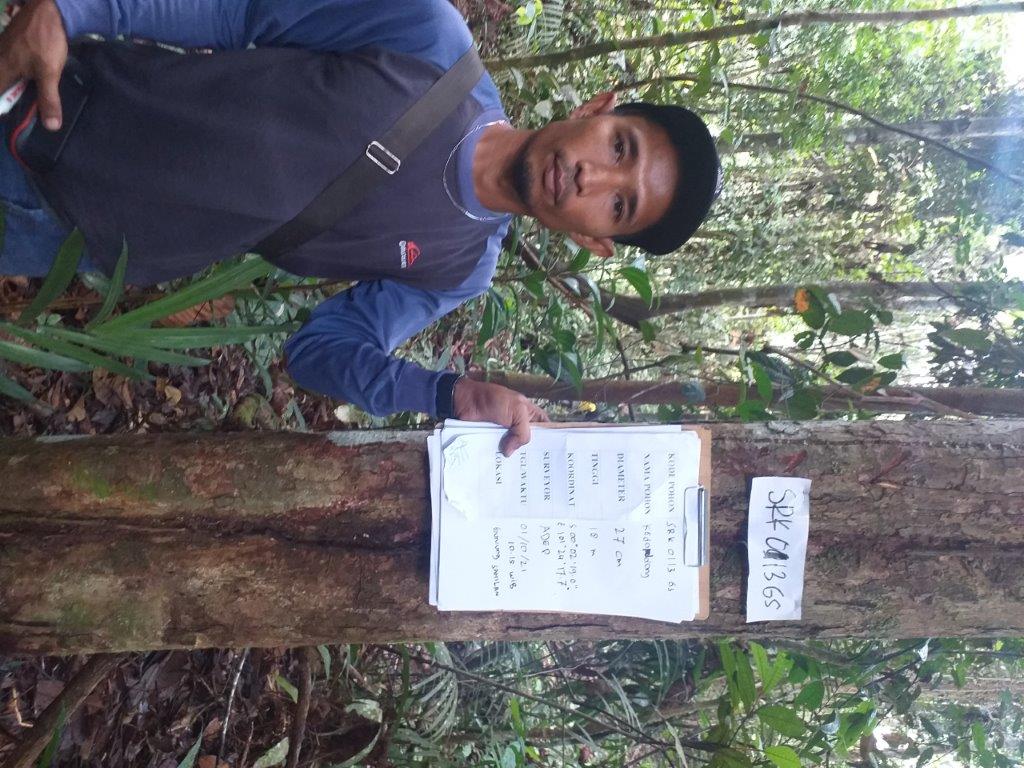 SRK 0113 GS
KODE POHON SRK 0113 GS
NAMA POHON Kedondong
DIAMETER 27 cm
TINGGI 18 m
KOORDINAT S 00°02'19.0"
E 101°24'17.7"
SURVEYOR ADEP
TGL/WAKTU 01/10/21
10:15 WIB
LOKASI Gunung Sahilan
QUIKSILVER